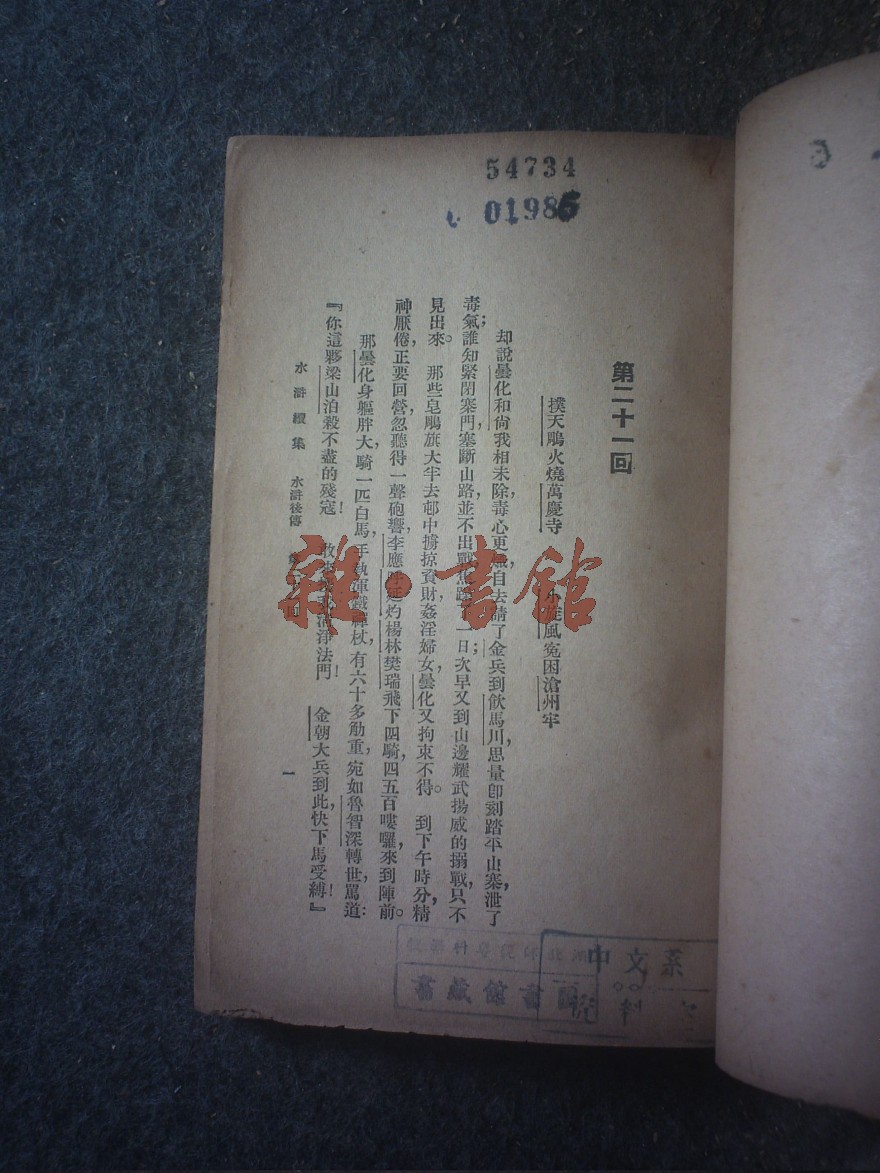 54734
01985
第二十一回
撲天鵰火燒萬慶寺　小旋風冤困滄州牢
却說曇化和尙我相未除，毒心更熾，自去請了金兵到飮馬川，思量卽刻踏平山寨，泄了
毒氣；誰知緊閉寨門，塞斷山路，並不出戰，焦躁一日；次早又到山邊耀武揚威的搦戰，只不
見出來。那些皂鵰旗大半去邨中擄掠資財，姦淫婦女，曇化又拘束不得。到下午時分，精
神厭倦，正要回營，忽聽得一聲砲響，李應呼延灼楊林樊瑞飛下四騎，四五百嘍囉，來到陣前。
那曇化身軀胖大，騎一匹白馬，手執渾鐵禪杖，有六十多觔重，宛如魯智深轉世，罵道：
『你這夥梁山泊殺不盡的殘寇！敢來 淸淨法門！金朝大兵到此，快下馬受縛！』
水滸續集　水滸後傳　回　一
雜·書館
中文系
圖書館藏書